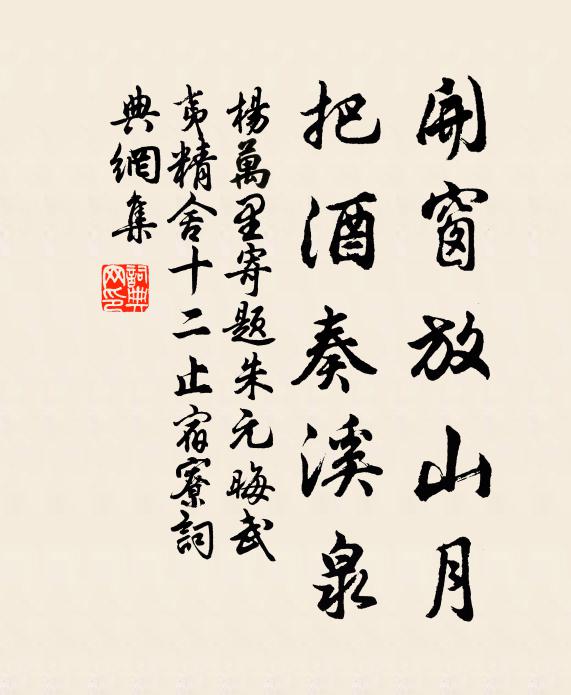 開窗放山月
把酒奏溪泉
楊萬里寄題朱元晦武
夷精舍十二止宿寮詞
典網集
詞典
网印